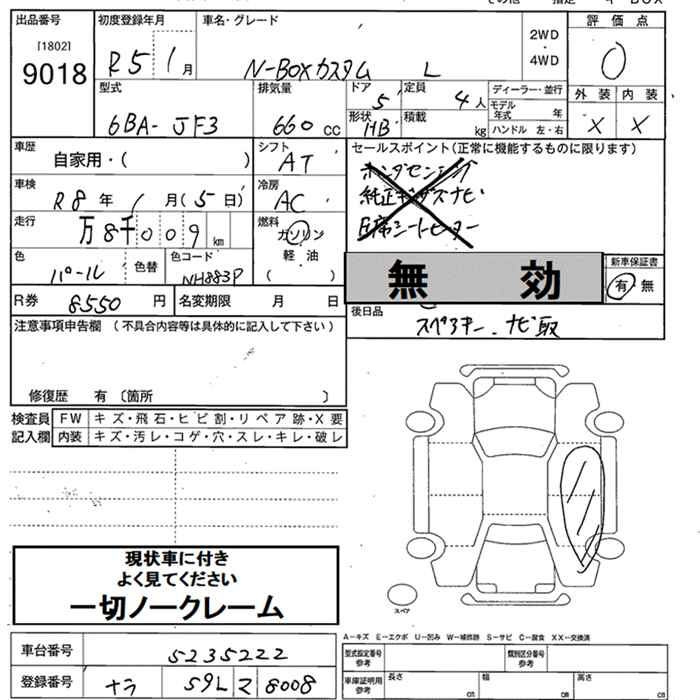 出品番号 初度登録年月 車名・グレード 評価点
[1802]
9018 R5 1月 N-BOXカスタム L 2WD・4WD 0
型式 排気量 ドア 定員 ディーラー・並行 外装 内装
6BA-JF3 660cc 5 4人 モデル年式 年 X X
形状 HB 積載 kg ハンドル 左・右
車歴 シフト セールスポイント(正常に機能するものに限ります)
自家用・( ) AT ホンダセンシング
車検 冷房 純正ギャザズナビ
R8年 1月(5日) AC 前席シートヒーター
走行 燃料
万8千009km ガソリン
軽油
( )
色 色替 色コード 無効 新車保証書
パール NH883P 有・無
R券 8550円 名変期限 月 日 後日品
スペアキー、ナビ取
注意事項申告欄 (不具合内容等は具体的に記入して下さい)
修復歴 有 〔箇所 〕
検査員 FW キズ・飛石・ヒビ割・リペア跡・X要
記入欄 内装 キズ・汚レ・コゲ・穴・スレ・キレ・破レ
現状車に付き
よく見てください
一切ノークレーム
スペア
A-キズ E-エクボ U-凹み W-補修跡 S-サビ C-腐食 XX-交換済
車台番号 5235222 型式指定番号 参考 類別区分番号 参考
登録番号 ナラ 59L マ 8008 車庫証明用 参考 長さ cm 幅 cm 高さ cm